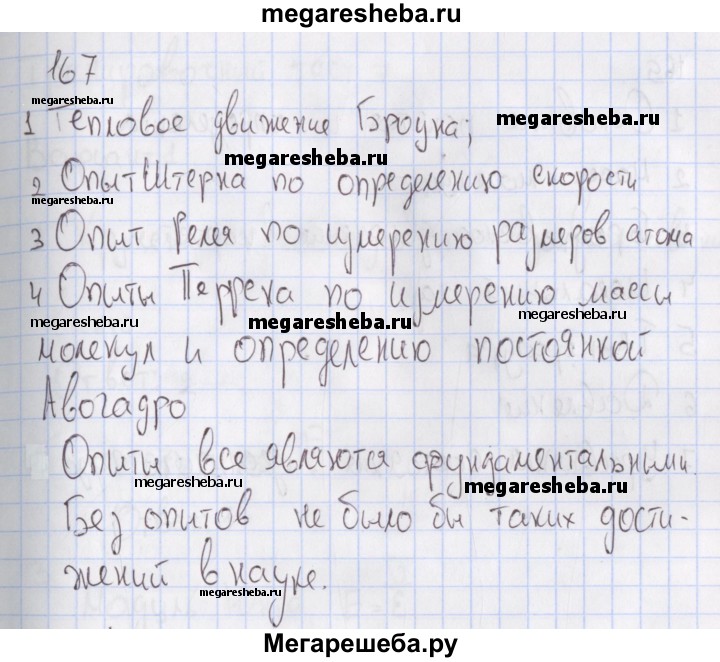 megaresheba.ru
167
megaresheba.ru
1 Тепловое движение Броуна; megaresheba.ru
megaresheba.ru
2 Опыт Штерна по определению скорости
megaresheba.ru
3 Опыт Релея по измерению размеров атома
4 Опыты Перрена по измерению массы
megaresheba.ru megaresheba.ru megaresheba.ru
молекул и определению постоянной
Авогадро
Опыты все являются фундаментальными.
megaresheba.ru megaresheba.ru
Без опытов не было бы таких дости-
жений в науке.
megaresheba.ru
Мегарешеба.ру